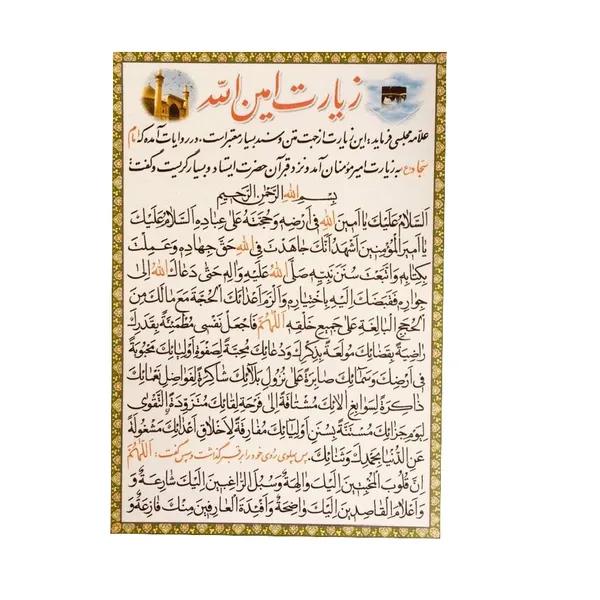 زیارت امین الله
علامه مجلسی فرماید: این زیارت از جهت متن و سند بسیار معتبر است. در روایات آمده که امام
سجاد(ع) به زیارت امیرمؤمنان آمد و نزد قبر آن حضرت ایستاد و بسیار گریست و گفت:
بِسْمِ اللهِ الرَّحْمٰنِ الرَّحیمِ
اَلسَّلامُ عَلَیْكَ یا اَمینَ اللهِ فی اَرْضِهِ وَ حُجَّتَهُ عَلی عِبادِهِ اَلسَّلامُ عَلَیْكَ
یا اَمیرَ الْمُؤْمِنینَ اَشْهَدُ اَنَّكَ جاهَدْتَ فِی اللهِ حَقَّ جِهادِهِ وَ عَمِلْتَ
بِکِتابِهِ وَ اتَّبَعْتَ سُنَنَ نَبِیِّهِ صَلَّی اللهُ عَلَیْهِ وَ الِهِ حَتّی دَعاكَ اللهُ اِلی
جِوارِهِ فَقَبَضَكَ اِلَیْهِ بِاخْتِیارِهِ وَ اَلْزَمَ اَعْدائَكَ الْحُجَّةَ مَعَ مالَكَ مِنَ
الْحُجَجِ الْبالِغَةِ عَلی جَمیعِ خَلْقِهِ اَللّهُمَّ فَاجْعَلْ نَفْسی مُطْمَئِنَّةً بِقَدَرِكَ
راضِیَةً بِقَضائِكَ مُولَعَةً بِذِکْرِكَ وَ دُعائِكَ مُحِبَّةً لِصَفْوَةِ اَوْلِیائِكَ مَحْبُوبَةً
فی اَرْضِكَ وَ سَمائِكَ صابِرَةً عَلی نُزُولِ بَلائِكَ شاکِرَةً لِفَواضِلِ نَعْمائِكَ
ذاکِرَةً لِسَوابِغِ الائِكَ مُشْتاقَةً اِلی فَرْحَةِ لِقائِكَ مُتَزَوِّدَةً التَّقْوی
لِیَوْمِ جَزائِكَ مُسْتَنَّةً بِسُنَنِ اَوْلِیائِكَ مُفارِقَةً لِاَخْلاقِ اَعْدائِكَ مَشْغُولَةً
عَنِ الدُّنْیا بِحَمْدِكَ وَ ثَنائِكَ. پس پهلوی روی خود را بر قبر گذاشت و سپس گفت: اَللّهُمَّ
اِنَّ قُلُوبَ الْمُخْبِتینَ اِلَیْكَ والِهَةٌ وَ سُبُلَ الرّاغِبینَ اِلَیْكَ شارِعَةٌ وَ
وَ اَعْلامَ الْقاصِدینَ اِلَیْكَ واضِحَةٌ وَ اَفْئِدَةَ الْعارِفینَ مِنْكَ فازِعَةٌ وَ